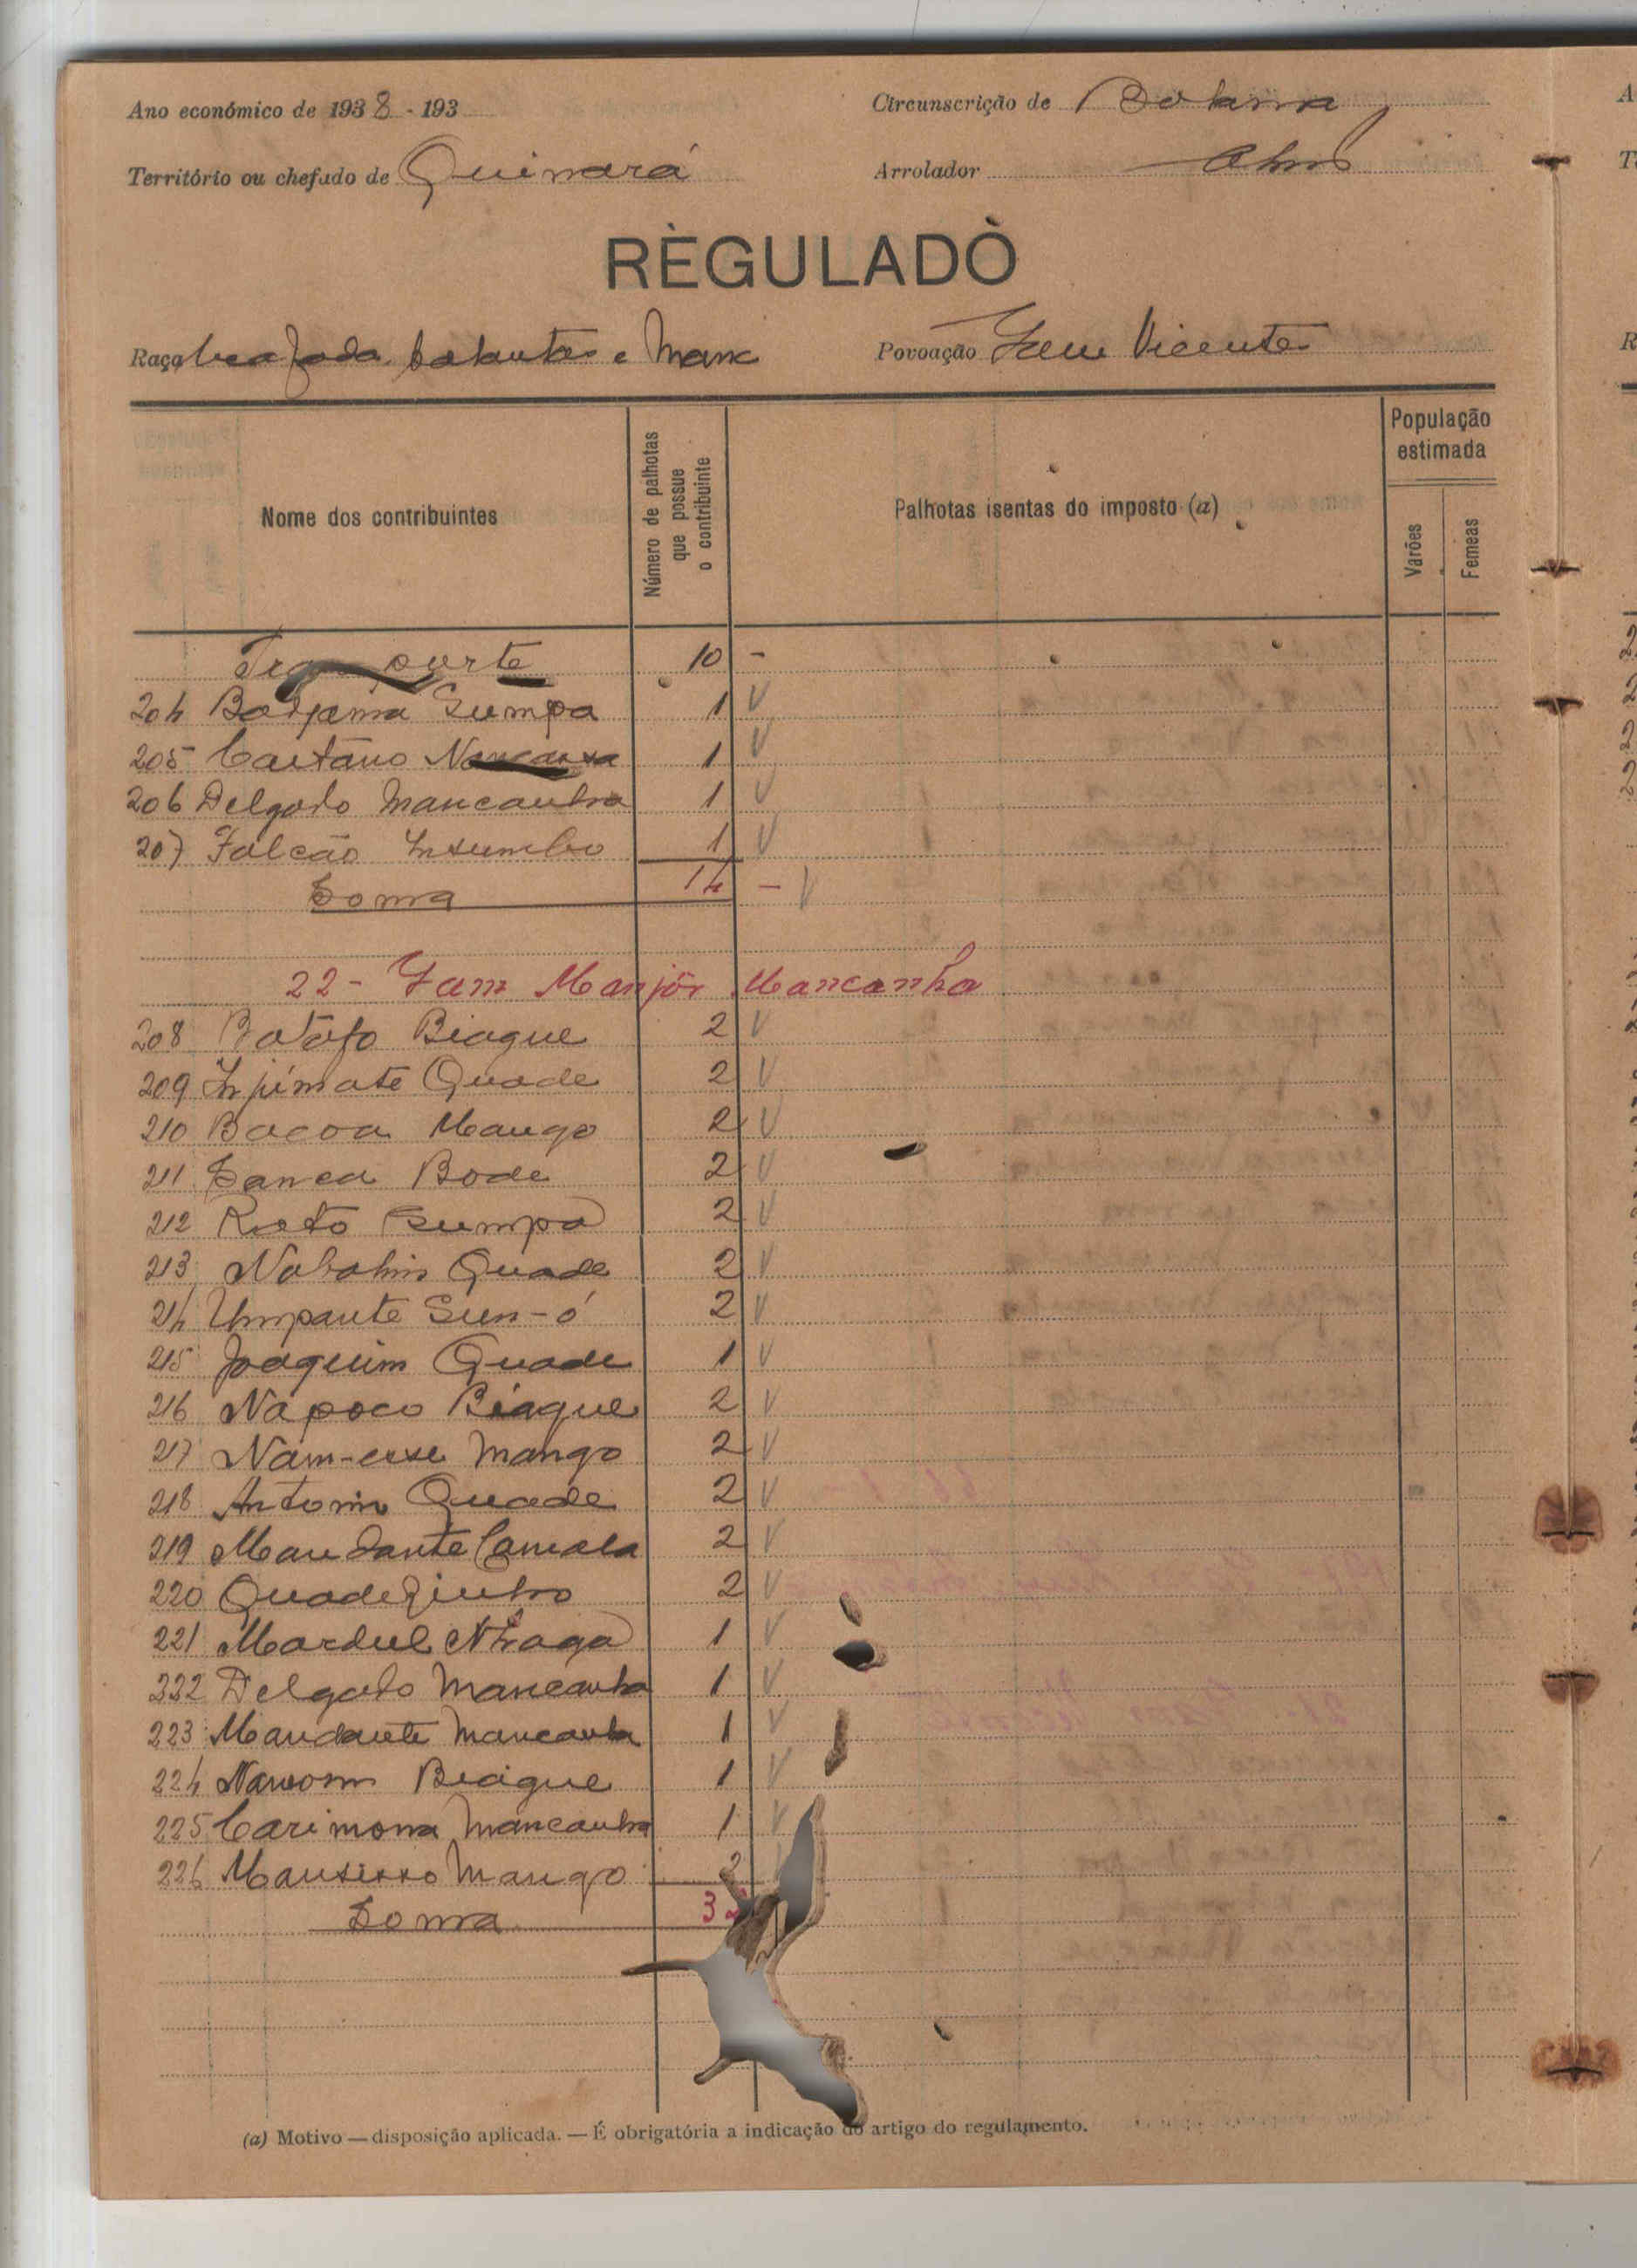 Ano económico de 1938 - 193
Circunscrição de Bolama
Território ou chefado de Quinará
Arrolador
RÈGULADÒ
Raça beafada balantas e Manc
Povoação Gam Vicente
Nome dos contribuintes
Número de palhotas que possue o contribuinte
Palhotas isentas do imposto (a)
População estimada
Varões
Femeas
Transporte 10 -
204 Gumpa 1 V
205 Caetano 1 V
206 Delgado Mancanha 1 V
207 Falcão Insumbo 1 V
Soma 14 - V
22 - Gam Manjôr Mancanha
208 Batáfo Biague 2 V
209 Quade 2 V
210 Bacoa Mango 2 V
211 Sanca Bode 2 V
212 Gumpa 2 V
213 Quade 2 V
214 Umpante Sun-ó 2 V
215 Joaquim Quade 1 V
216 Nápoco Biague 2 V
217 Mango 2 V
218 Antonio Quade 2 V
219 2 V
220 Quadezinho 2 V
221 1 V
222 Delgado Mancanha 1 V
223 Mandante Mancanha 1 V
224 Biague 1 V
225 Carimona Mancanha 1 V
226 Mango 2
Soma 32
(a) Motivo — disposição aplicada. — É obrigatória a indicação do artigo do regulamento.